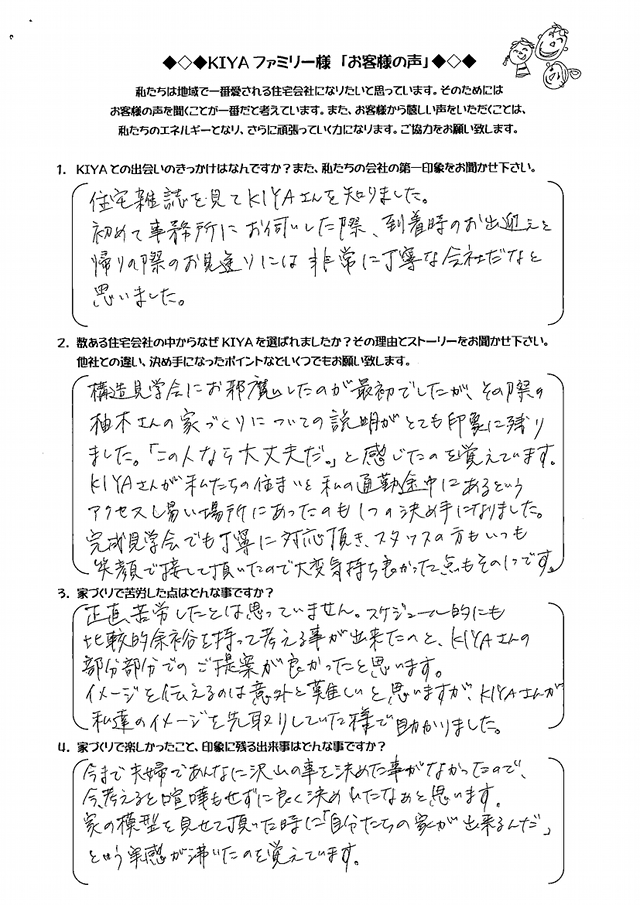 ◆◇◆KIYAファミリー様「お客様の声」◆◇◆
私たちは地域で一番愛される住宅会社になりたいと思っています。そのためには
お客様の声を聞くことが一番だと考えています。また、お客様から嬉しい声をいただくことは、
私たちのエネルギーとなり、さらに頑張っていく力になります。ご協力をお願い致します。
1. KIYAとの出会いのきっかけはなんですか?また、私たちの会社の第一印象をお聞かせ下さい。
住宅雑誌を見てKIYAさんを知りました。
初めて事務所にお伺いした際、到着時のお出迎えと
帰りの際のお見送りには非常に丁寧な会社だなと
思いました。
2. 数ある住宅会社の中からなぜKIYAを選ばれましたか?その理由とストーリーをお聞かせ下さい。
他社との違い、決め手になったポイントなどいくつでもお願い致します。
構造見学会にお邪魔したのが最初でしたが、その際の
柚木さんの家づくりについての説明がとても印象に残り
ました。「この人なら大丈夫だ。」と感じたのを覚えています。
KIYAさんが私たちの住まいと私の通勤途中にあるという
アクセスし易い場所にあったのも1つの決め手になりました。
完成見学会でも丁寧に対応頂き、スタッフの方もいつも
笑顔で接して頂いたので大変気持ち良かった点もその1つです。
3. 家づくりで苦労した点はどんな事ですか?
正直苦労したとは思っていません。スケジュール的にも
比較的余裕を持って考える事が出来たのと、KIYAさんの
部分部分でのご提案が良かったと思います。
イメージを伝えるのは意外と難しいと思いますが、KIYAさんが
私達のイメージを先取りしていた様で助かりました。
4. 家づくりで楽しかったこと、印象に残る出来事はどんな事ですか?
今まで夫婦であんなに沢山の事を決めた事がなかったので、
今考えると喧嘩もせずに良く決めれたなぁと思います。
家の模型を見せて頂いた時に「自分たちの家が出来るんだ」
という実感が沸いたのを覚えています。